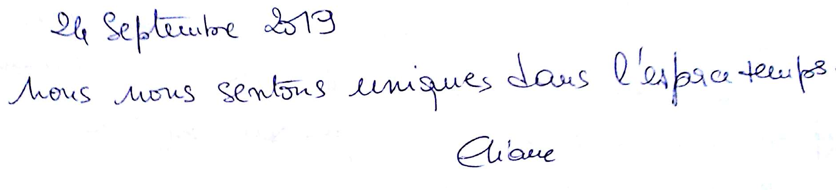 24 Septembre 2019
Nous nous sentons uniques dans l'espace temps.
Eliane